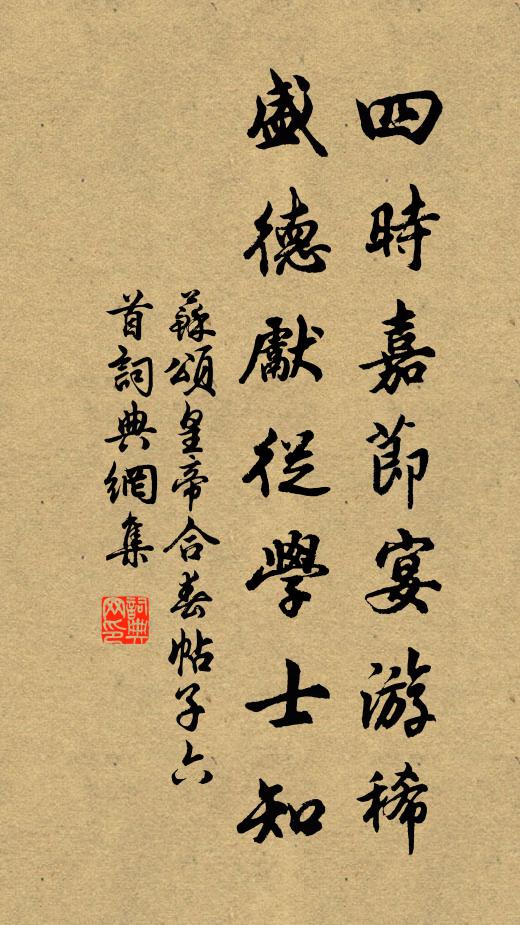 四時嘉節宴游稀
盛德獻從學士知
蘇頌皇帝合春帖子六
首詞典網集
詞典
网印